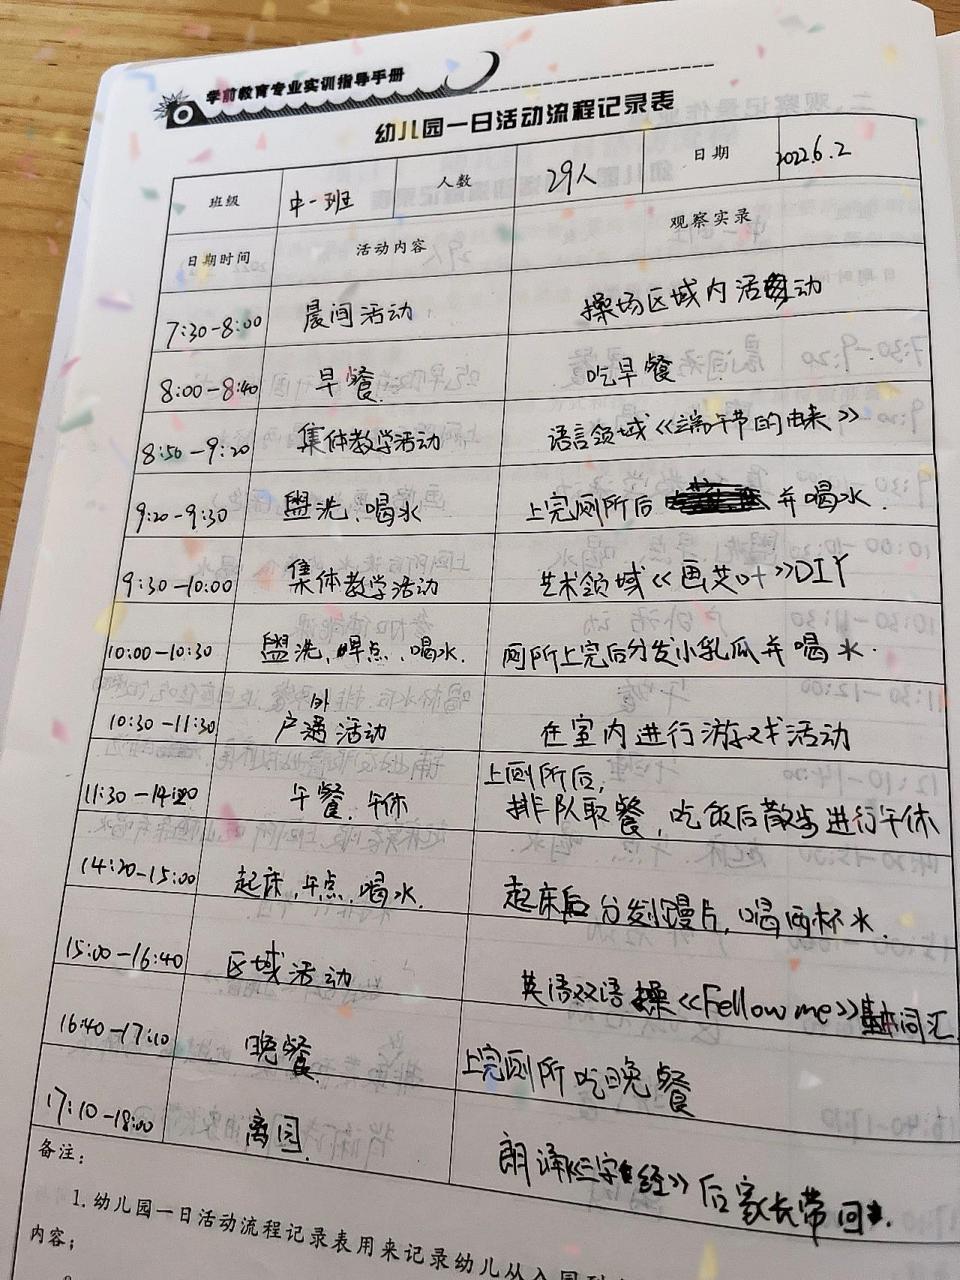 学前教育专业实训指导手册
幼儿园一日活动流程记录表
班级 中一班 人数 29人 日期 2022.6.2
日期时间 活动内容 观察实录
7:30-8:00 晨间活动 操场区域内活动
8:00-8:40 早餐. 吃早餐
8:50-9:20 集体教学活动 语言领域《端午节的由来》.
9:20-9:30 盥洗、喝水 上完厕所后 并喝水.
9:30-10:00 集体教学活动 艺术领域《画艾叶》DIY
10:00-10:30 盥洗、早点、喝水. 厕所上完后分发小乳瓜并喝水.
10:30-11:30 户外活动 在室内进行游戏活动
11:30-14:20 午餐、午休 上厕所后,
排队取餐,吃饭后散步进行午休
14:20-15:00 起床、午点、喝水. 起床后分发小馒片,喝两杯水.
15:00-16:40 区域活动 英语双语操《Fellow me》基本词汇
16:40-17:10 晚餐. 上完厕所吃晚餐
17:10-18:00 离园. 朗诵《三字经》后家长带回.
备注:
1.幼儿园一日活动流程记录表用来记录幼儿从入园到
内容;